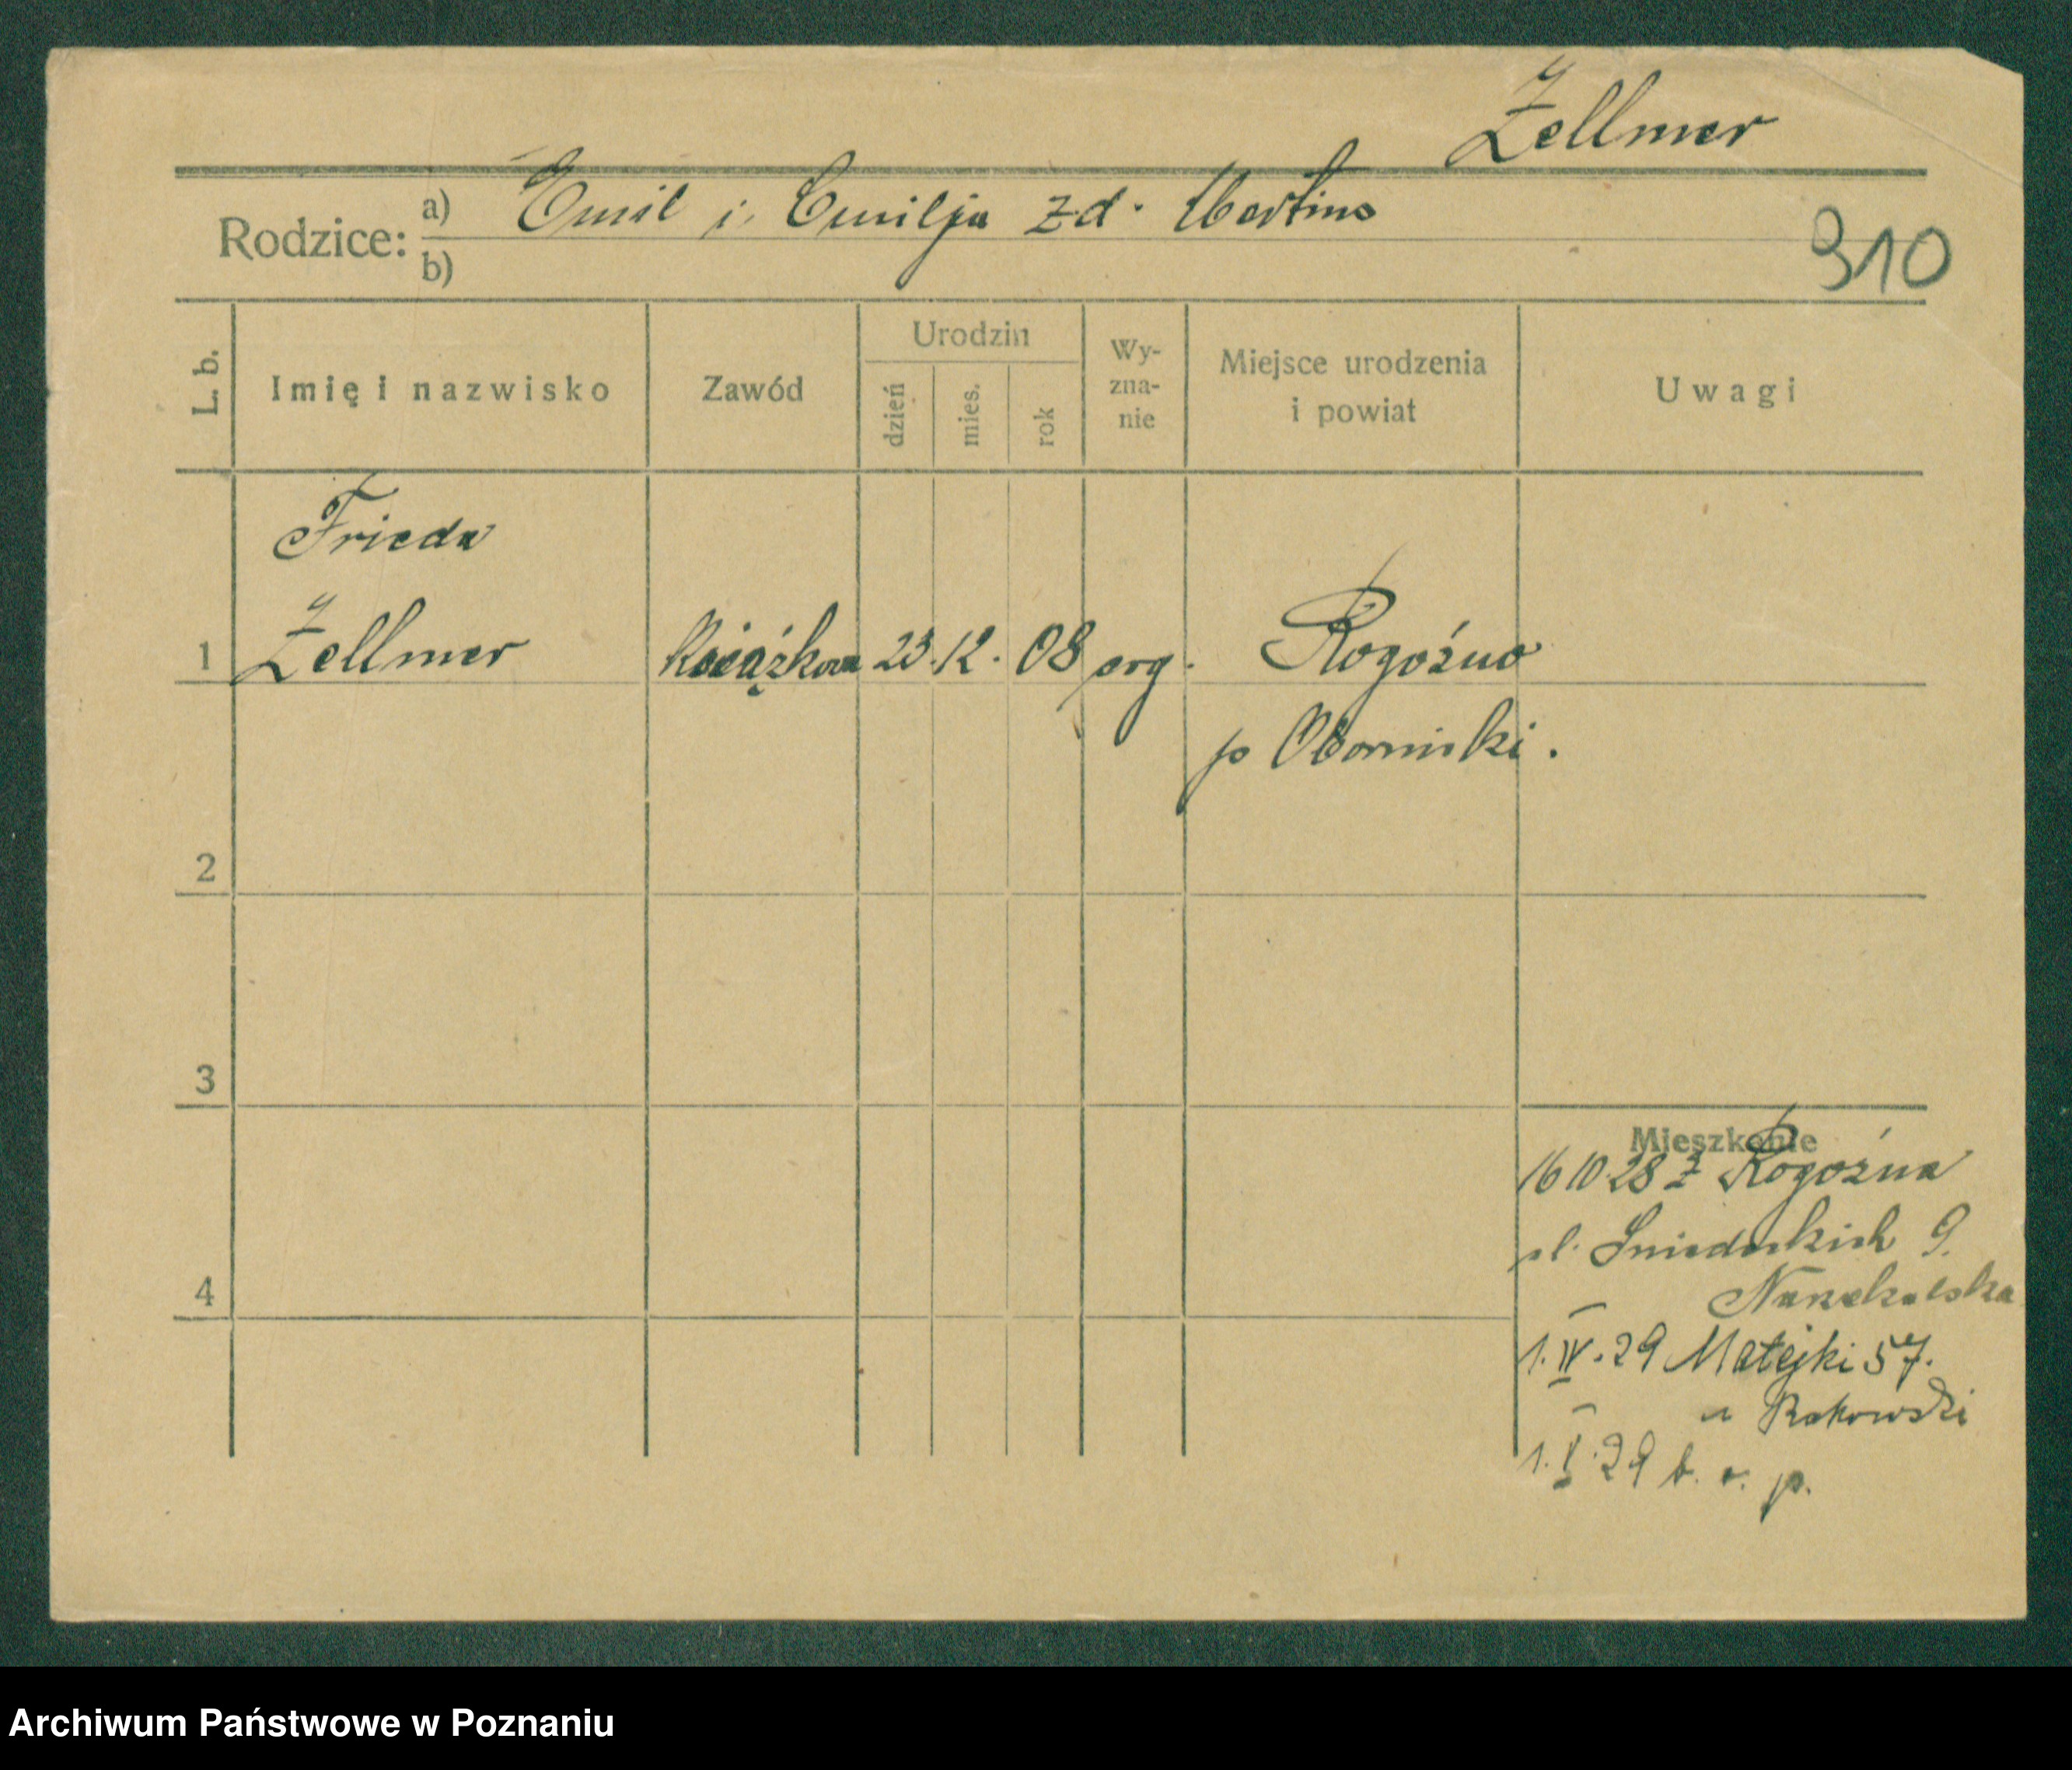 Zellmer
Rodzice: a) Emil i Emilja zd. Martins
b)
310
L. b.
Imię i nazwisko
Zawód
Urodzin
dzień
mies.
rok
Wy-
zna-
nie
Miejsce urodzenia
i powiat
Uwagi
Frieda
1 Zellmer 23. 12. 08 Rogoźno
p Oborniki.
2
3
4
Mieszkanie
16 10 28 z Rogoźna
pl. Śniadeckich 9.
1. IV. 29 Matejki 57.
u Rakowski
1. V. 29 b. o. p.
Archiwum Państwowe w Poznaniu